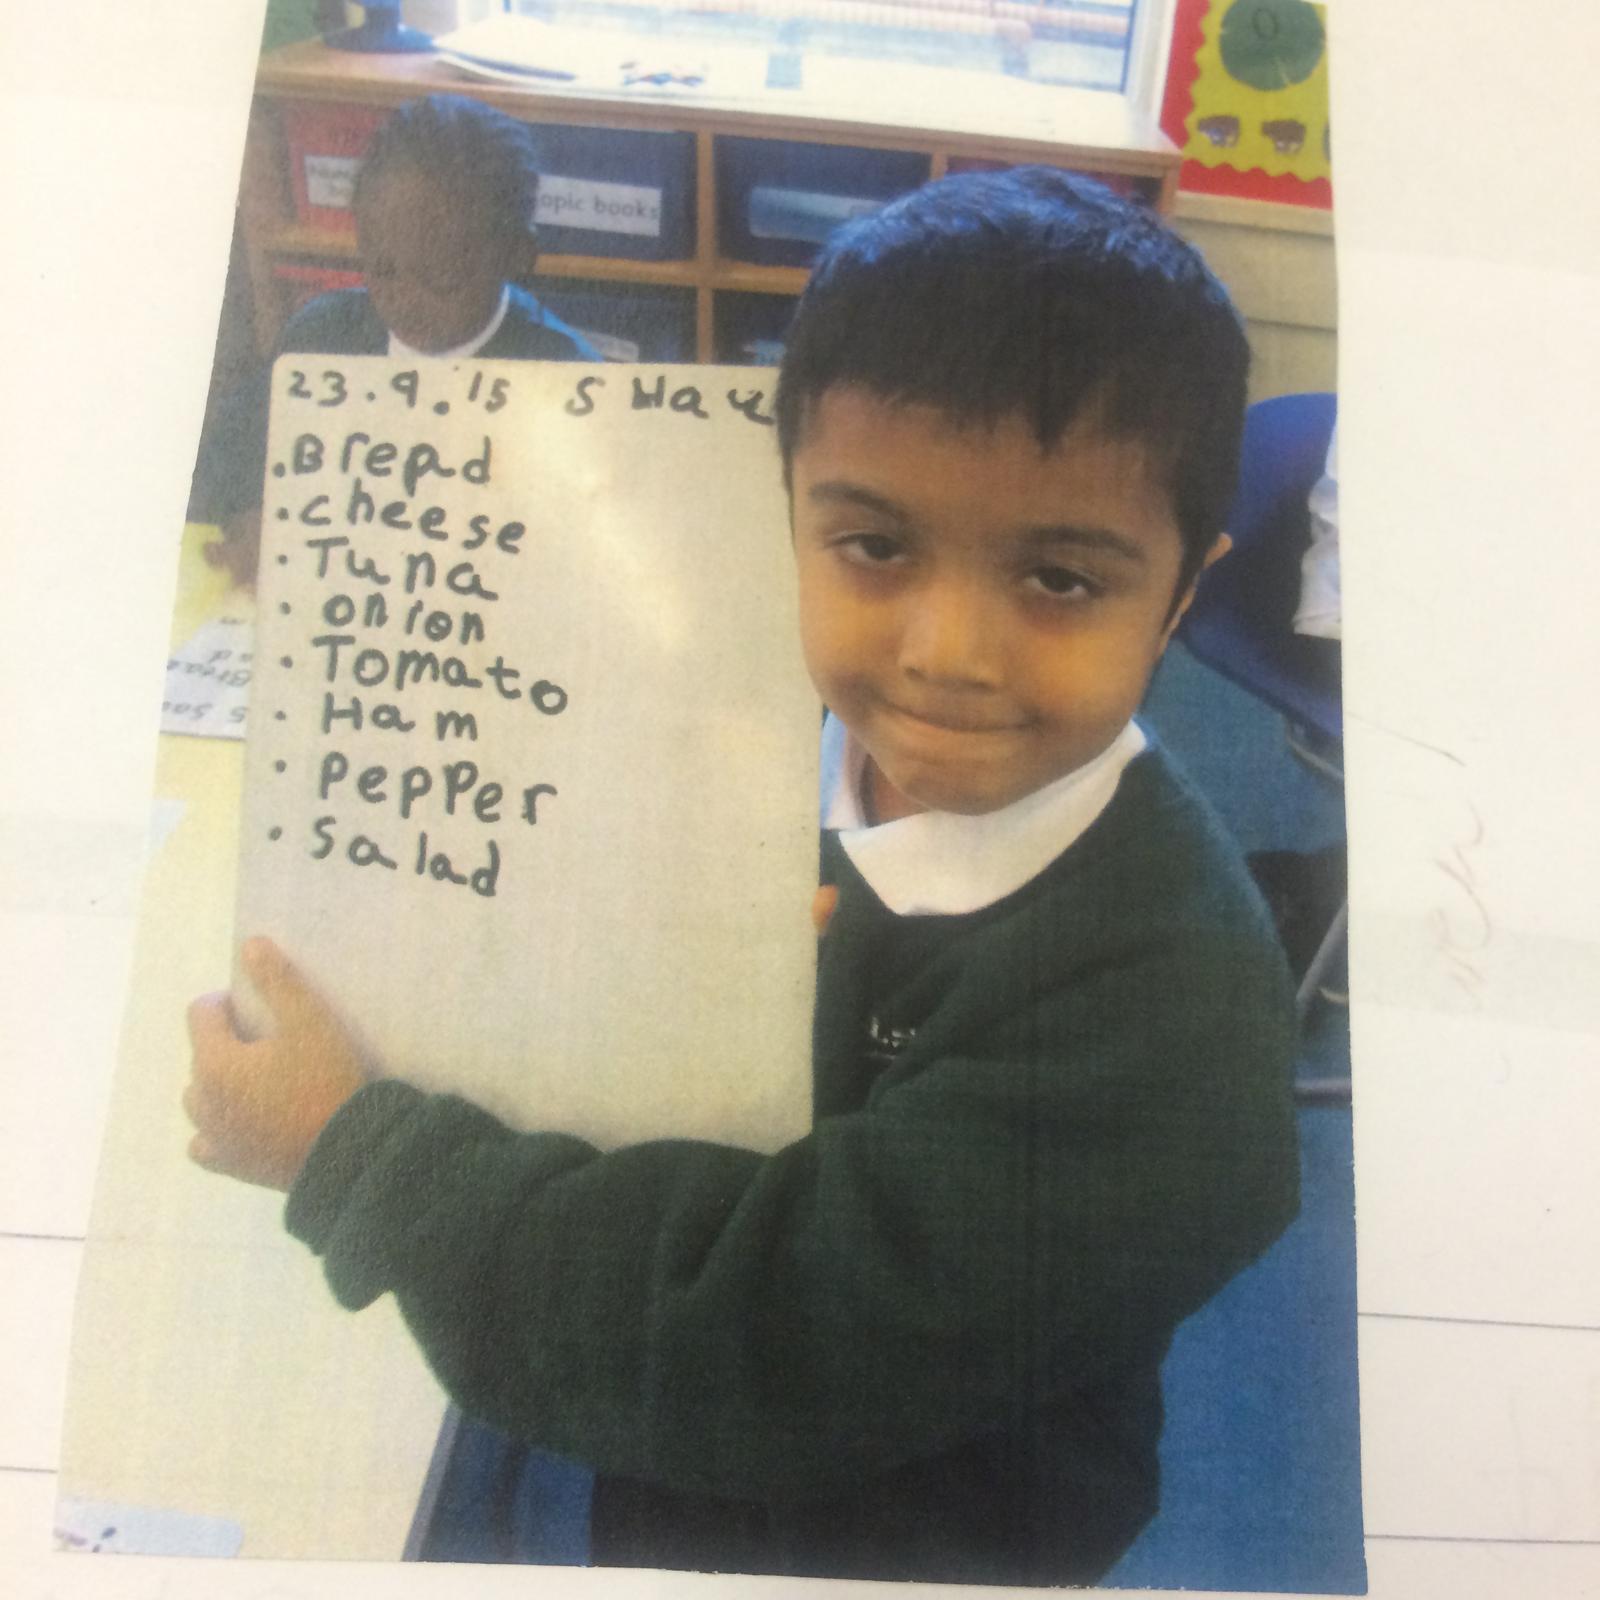 topic books
23.9.15
.Bread
.cheese
.Tuna
.onion
.Tomato
.Ham
.pepper
.salad